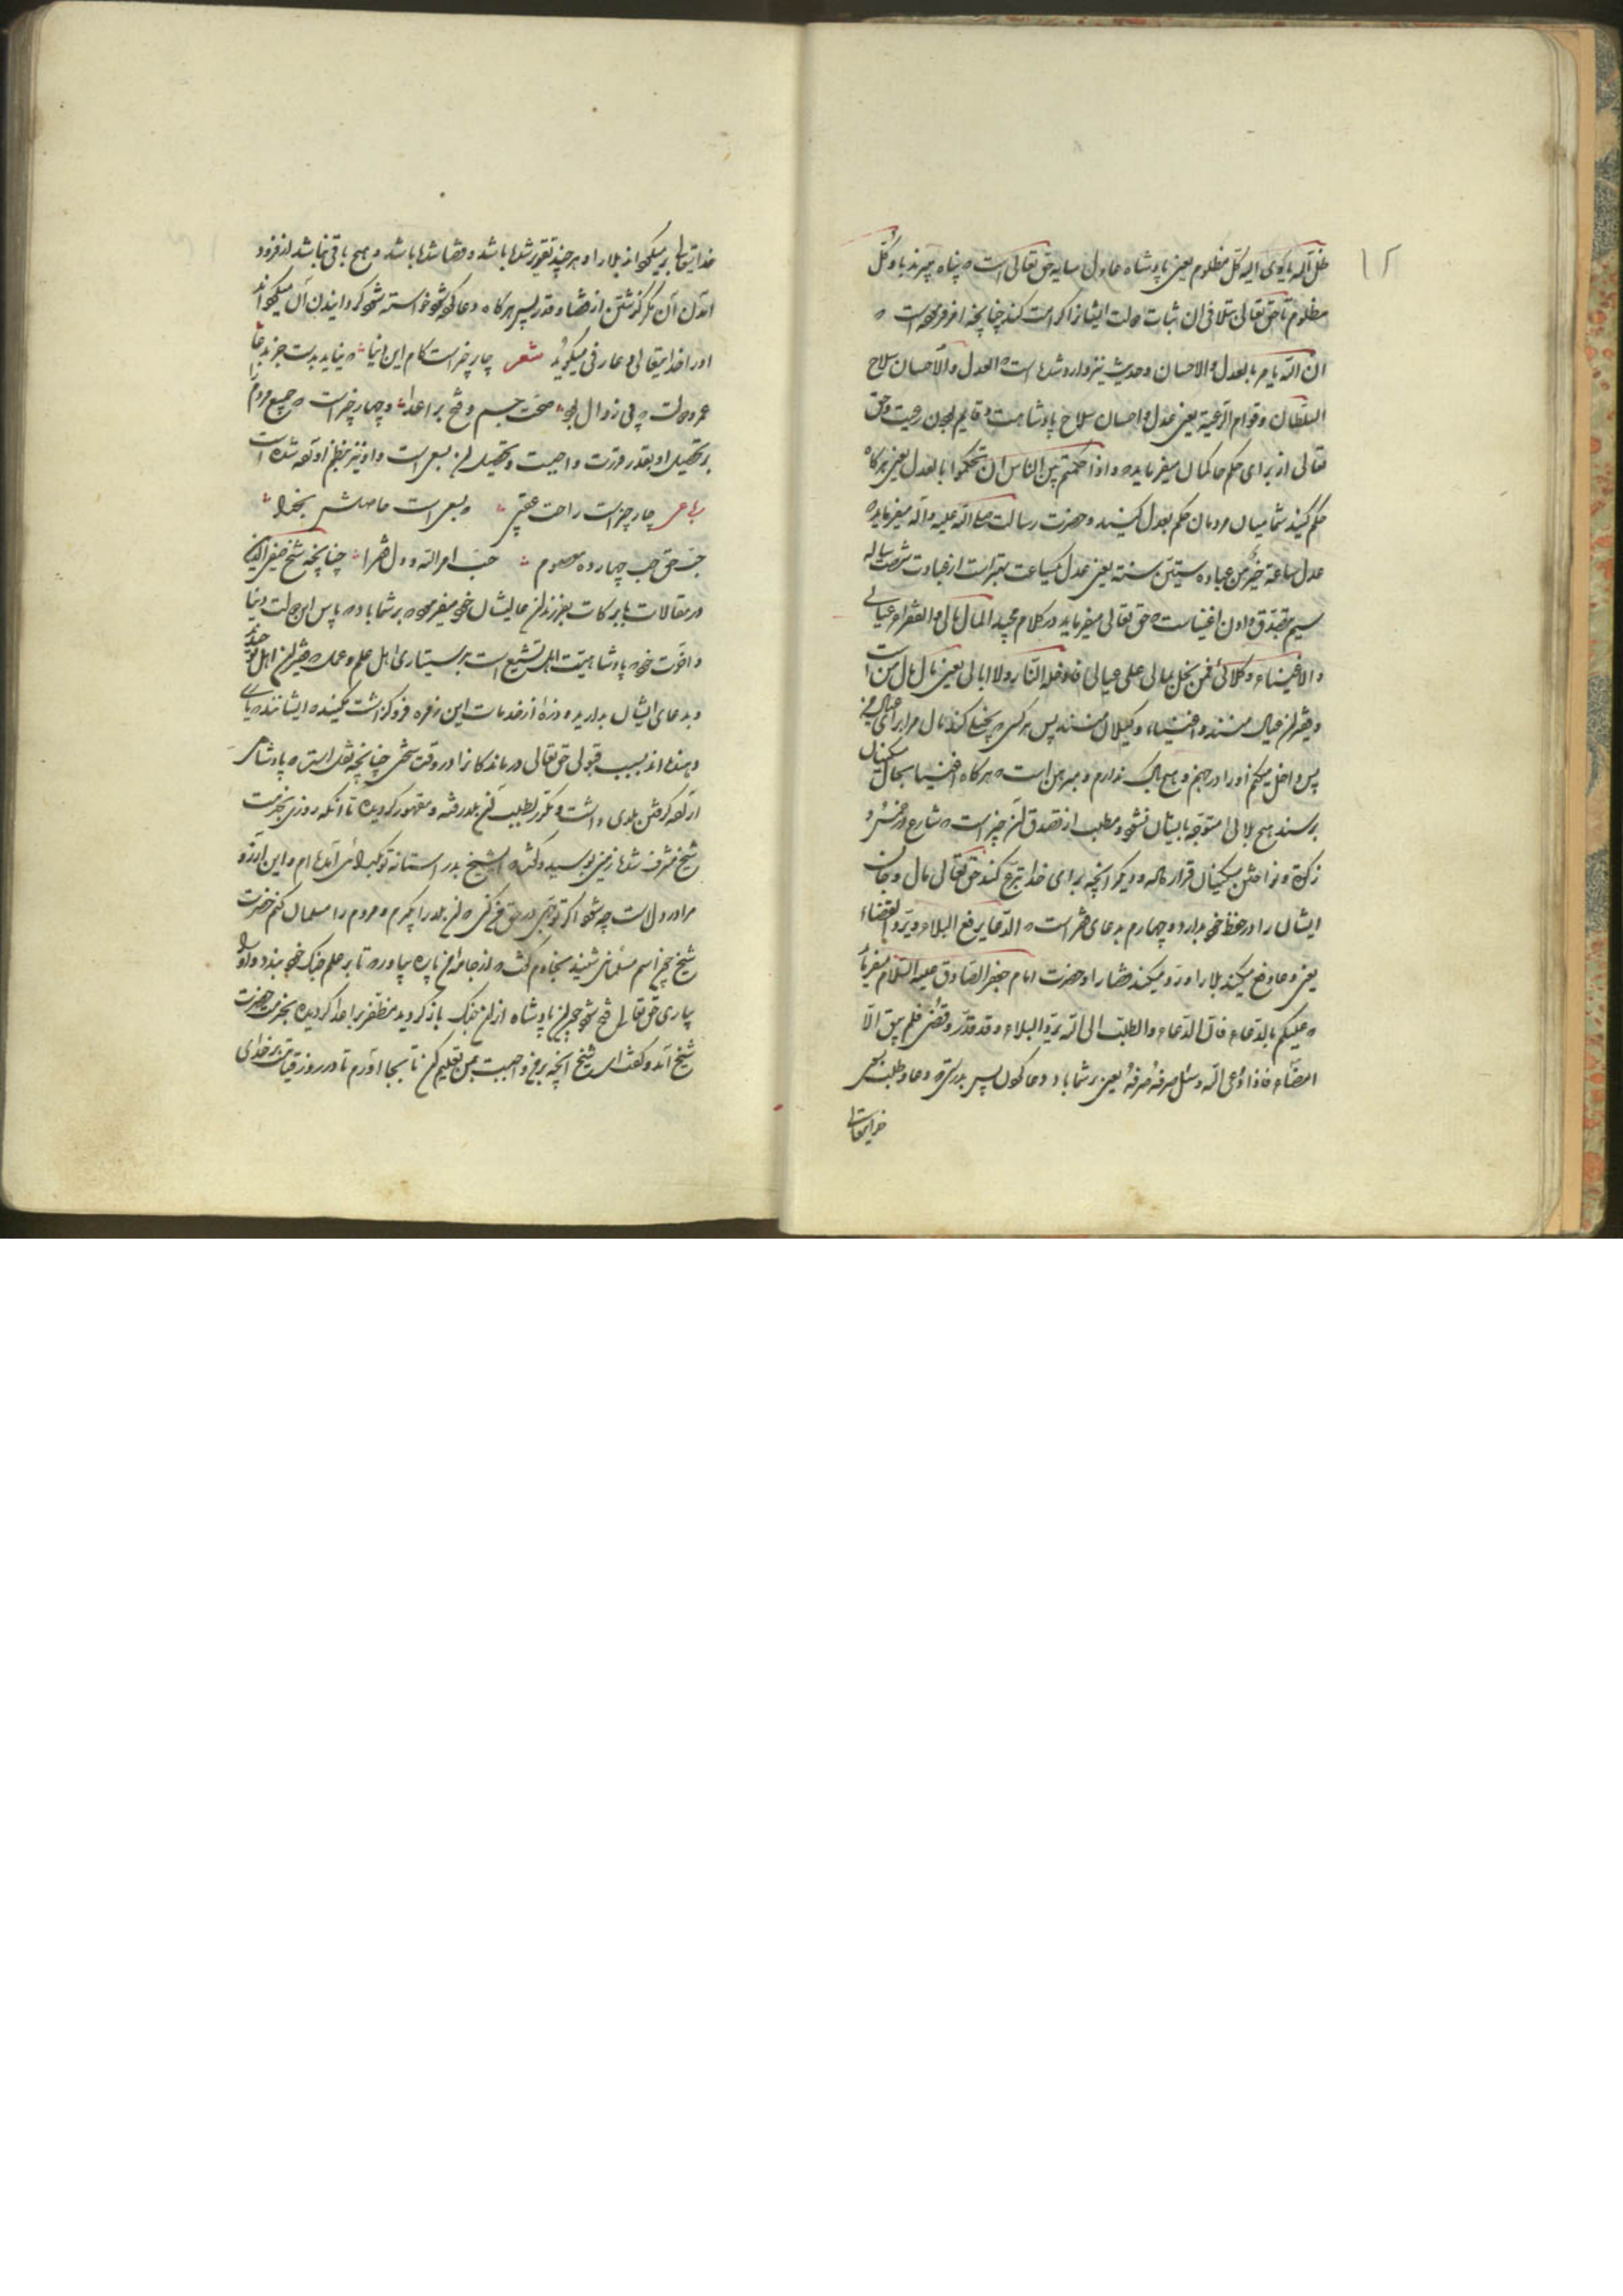 ۱۲
ظل الله یأوی الیه کل مظلوم یعنی پادشاه عادل سایه حق تعالی است که پناه میبرند باو کل
مظلوم تا حق تعالی بتلافی آن ثبات دولت ایشانرا کرامت کند چنانچه امر فرموده است که
ان الله یامر بالعدل والاحسان وحدیث نیز وارد شده است که العدل والاحسان سلاح
السلطان وقوام الرعیة یعنی عدل واحسان سلاح پادشاهست وقایم بودن رعیت وحق
تعالی از برای حکم حاکمان میفرماید که واذا حکمتم بین الناس ان تحکموا بالعدل یعنی هرکاه
حکم کنید شما میان مردمان حکم بعدل کنید وحضرت رسالت صلی الله علیه وآله میفرماید که
عدل ساعة خیر من عبادة ستین سنة یعنی عدل یکساعت بهتر است از عبادت شصت ساله
سیم تصدق دادن اغنیاست که حق تعالی میفرماید در کلام مجید المال مالی والفقراء عیالی
والاغنیاء وکلائی فمن بخل بمالی علی عیالی فادخله النار ولا ابالی یعنی مال مال من است
وفقیران عیال منند واغنیاء وکیلان منند پس هرکس که بخیلی کند بمال من برای عیال من
پس داخل میکنم اورا در جهنم وهیچ باک ندارم ومبرهن است که هرکاه اغنیا بحال مسکینان
برسند هیچ بلائی متوجه بایشان نشود ومطلب از تصدق آن چیز است که شارع از خمس و
زکوة ونواختن مسکینان قرار داده ودیکر آنچه برای خدا تبرع کند حق تعالی مال وجان
ایشان را در حفظ خود بدارد وچهارم بدعای فقر است که الدعا یرفع البلاء ویرد القضاء
یعنی دعا دفع میکند بلا را ورد میکند قضا را وحضرت امام جعفر الصادق علیه السلام میفرماید
که علیکم بالدعاء فان الدعاء والطلب الی الله یرد البلاء وقد قدر وقضی فلم یبق الا
امضاء فاذا دعی الله وسئل صرفه صرفه یعنی بر شما باد دعا کردن پس بدرستیکه دعا وطلب از
خدایتعالی
خدایتعالی برمیکرداند بلا را وهرچند تقدیر شده باشد وقضا شده باشد وهیچ باقی نباشد از فرود
آمدن آن مکر کذشتن از قضا وقدر پس هرکاه دعا کرده شود خواسته شود کردانیدن آن میکرداند
اورا خدایتعالی وعارفی میکوید شعر چار چیز است کام این دنیا که نیاید بدست جز بدعا
عمر ودولت که بی زوال بود صحت جسم وفتح بر اعدا وچهار چیز است که جمیع مردم
بر تحصیل او بقدر قدرت واجبست وتحصیل آن بسعی است واو نیز بنظم آورده شده است
رباعی چار چیز است راحت عقبی وبسعی است حاصلش بخدا
حب حق حب چهارده معصوم حب امر الله ودل فقرا چنانچه شیخ صفی الدین
در مقالات با برکات بفرزندان عالیشان خود میفرموده که بر شما باد که پاس این دولت دنیا
واخوت خود پادشاهیت اهل تشیع است بر بسیاری اهل علم وعمل که فقیران اهل خدایند
وبدعای ایشان بدارید وذره از خدمات این زمره فرو کذاشت نکنید که ایشانند که یاری
دهنده اند بسبب قبولی حق تعالی درماندکانرا در وقت سختی چنانچه نقل است که پادشاهی
اراده کرفتن بلدی داشت ومکرر بطلب آن بلد رفته ومقهور کردیده تا آنکه روزی بخدمت
شیخ مشرف شده زمین بوسیده وکفت ای شیخ بدر آستانه تو بکدائی آمده ام واین آرزو
مرا در دل است چه شود اکر توجهی در حق من کنی که آن بلد را بکیرم ومردم را مسلمان کنم حضرت
شیخ چون اسم مسلمانی شنید بخادم کفت که از جامه من پاره بیاور که تا بر علم جنک خود بندد واو را
بیاری حق تعالی فتح شود چون آن پادشاه از آن جنک باز کردید مظفر بر اعدا کردیده بخدمت حضرت
شیخ آمد وکفت ای شیخ آنچه بر من واجبست بمن تعلیم کن تا بجا آورم تا در روز قیامت نزد خدای